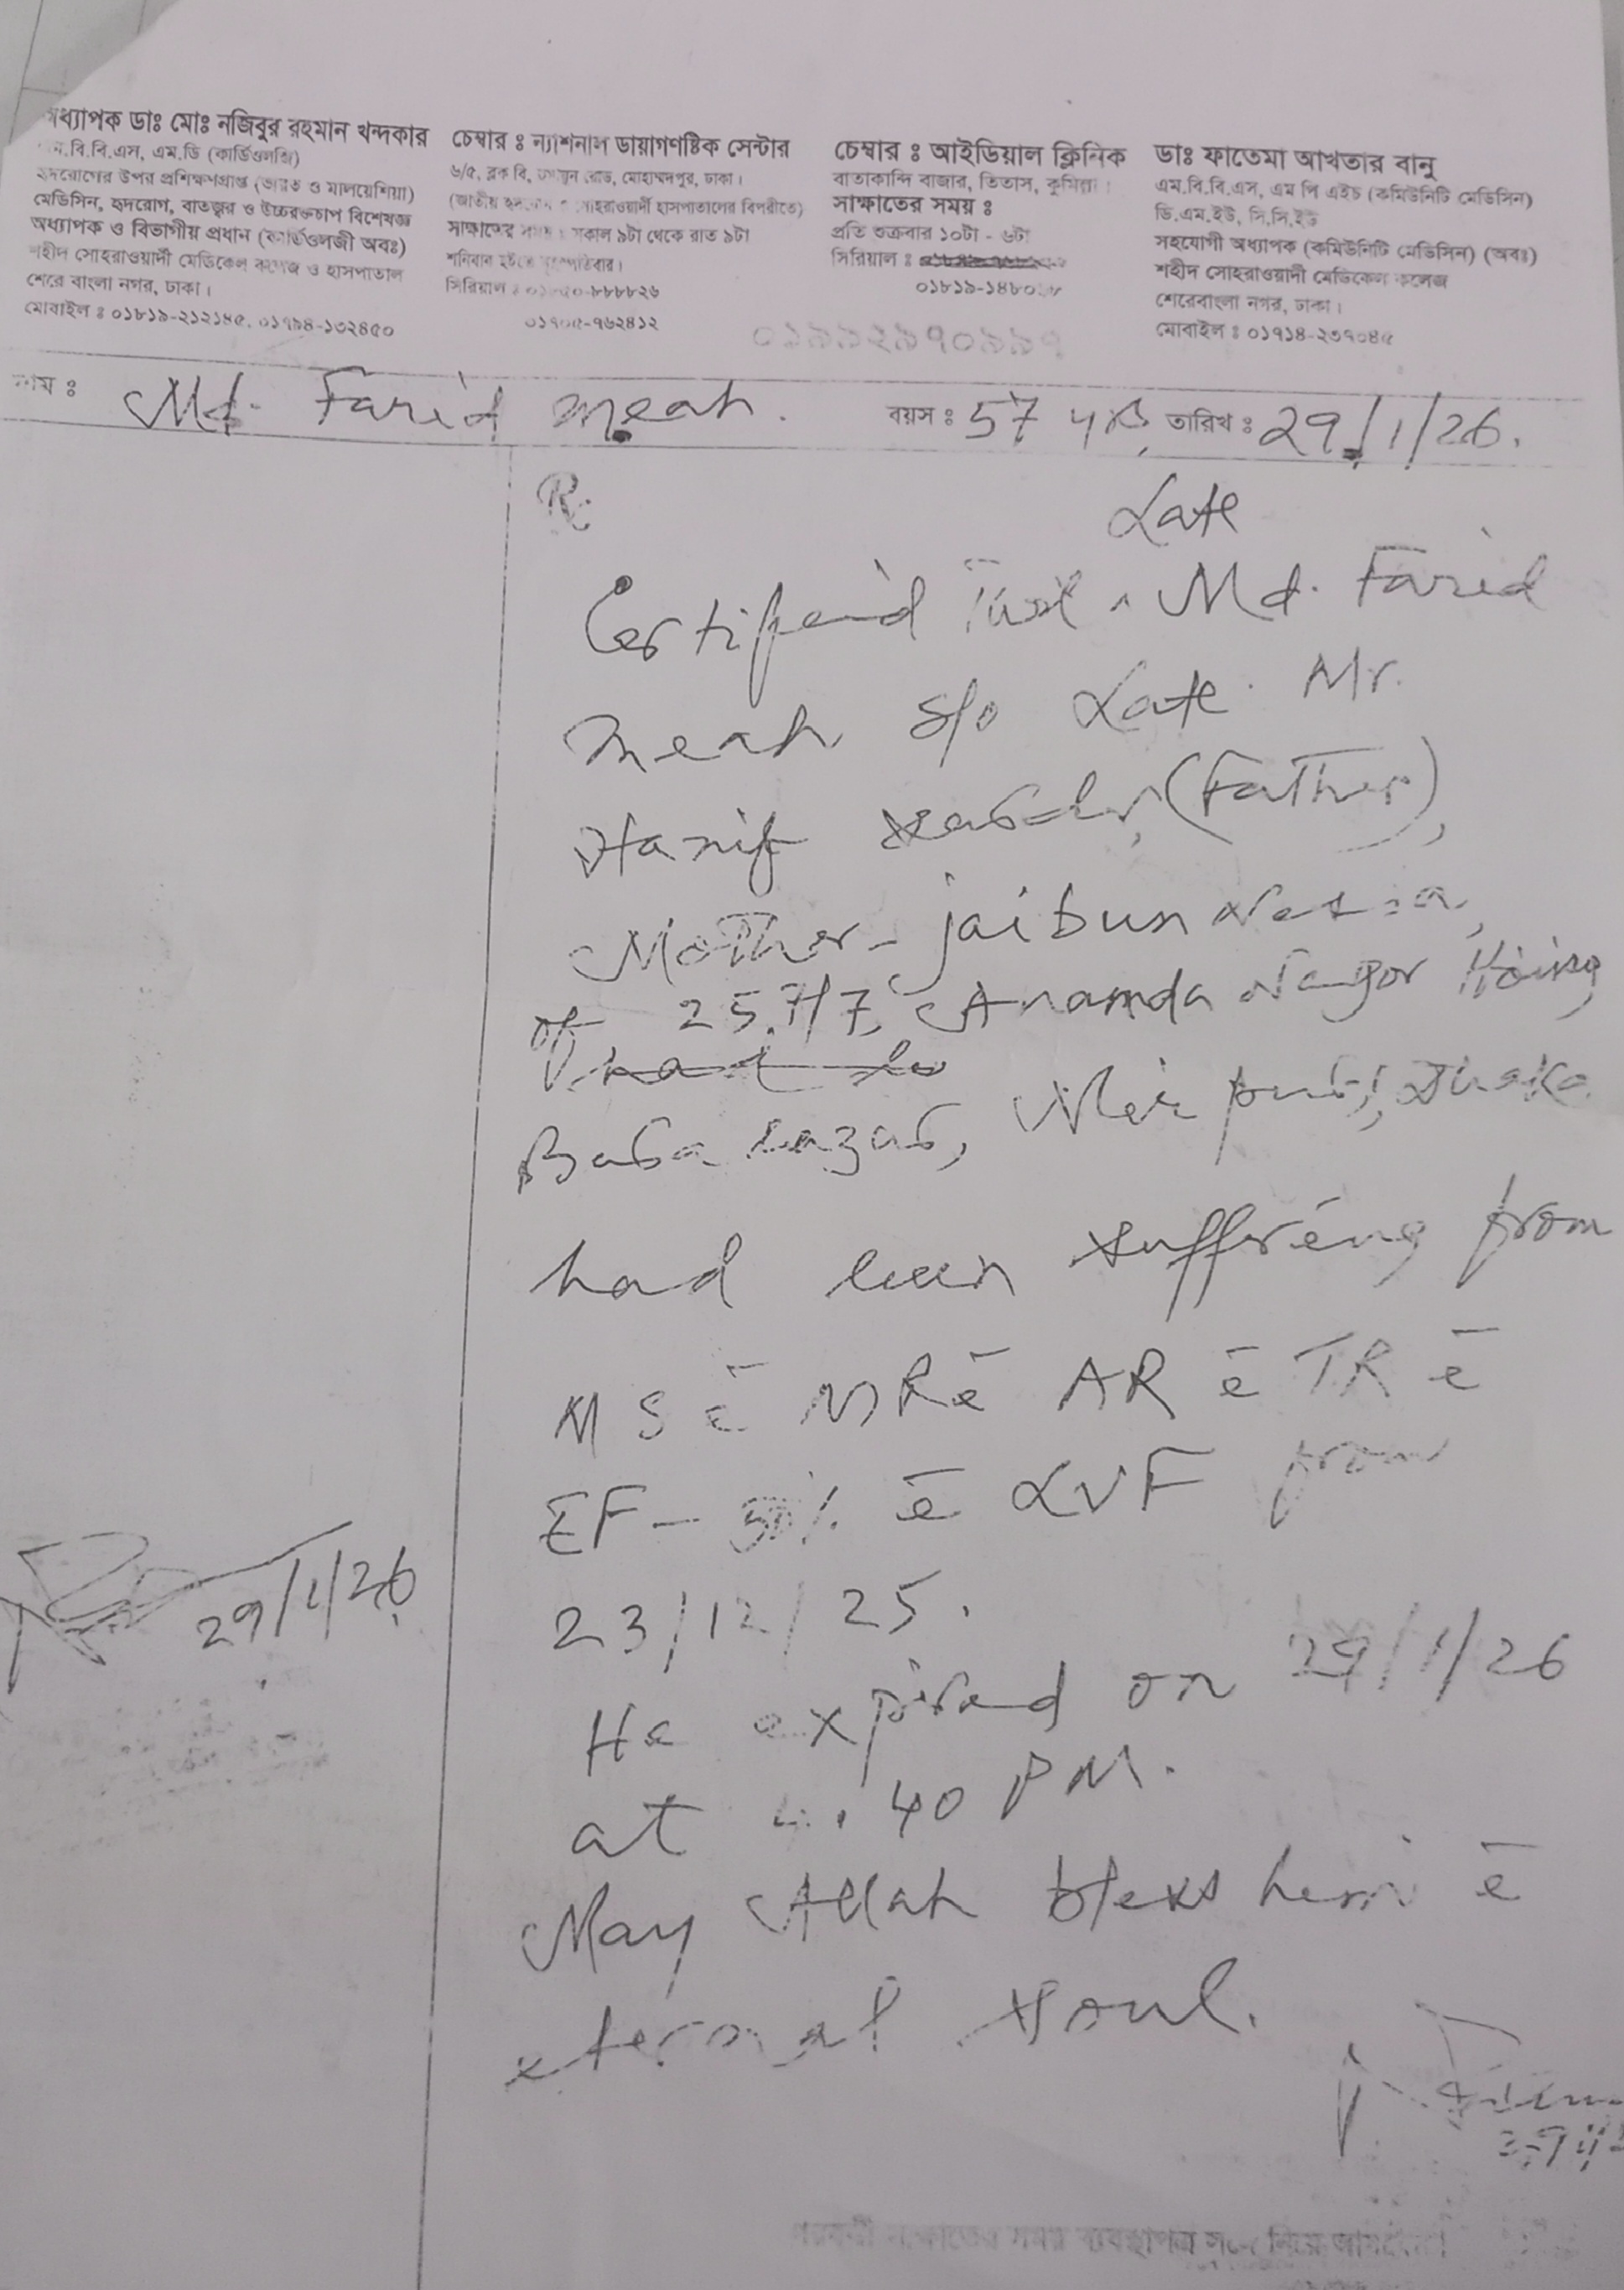 অধ্যাপক ডাঃ মোঃ নজিবুর রহমান খন্দকার
এম.বি.বি.এস, এম.ডি (কার্ডিওলজি)
হৃদরোগের উপর প্রশিক্ষণপ্রাপ্ত (ভারত ও মালয়েশিয়া)
মেডিসিন, হৃদরোগ, বাতজ্বর ও উচ্চরক্তচাপ বিশেষজ্ঞ
অধ্যাপক ও বিভাগীয় প্রধান (কার্ডিওলজী অবঃ)
শহীদ সোহরাওয়ার্দী মেডিকেল কলেজ ও হাসপাতাল
শেরে বাংলা নগর, ঢাকা।
মোবাইল ঃ ০১৮১৯-২১২১৪৫, ০১৭৯৪-১৩২৪৫০
চেম্বার ঃ ন্যাশনাল ডায়াগণষ্টিক সেন্টার
৬/৫, ব্লক বি, রোড, মোহাম্মদপুর, ঢাকা।
(জাতীয় সোহরাওয়ার্দী হাসপাতালের বিপরীতে)
সাক্ষাতের সময় ঃ সকাল ৯টা থেকে রাত ৯টা
শনিবার হইতে বৃহস্পতিবার।
সিরিয়াল ঃ
চেম্বার ঃ আইডিয়াল ক্লিনিক
বাতাকান্দি বাজার, তিতাস, কুমিল্লা।
সাক্ষাতের সময় ঃ
প্রতি শুক্রবার ১০টা - ৬টা
সিরিয়াল ঃ
ডাঃ ফাতেমা আখতার বানু
এম.বি.বি.এস, এম পি এইচ (কমিউনিটি মেডিসিন)
ডি.এম.ইউ, সি.সি.ইউ
সহযোগী অধ্যাপক (কমিউনিটি মেডিসিন) (অবঃ)
শহীদ সোহরাওয়াদী মেডিকেল কলেজ
শেরেবাংলা নগর, ঢাকা।
মোবাইল ঃ ০১৭১৪-২৩৭০৪৫
০১৯৯২৯৭০৯৯৭
নাম ঃ Md. Farid Meah. বয়স ঃ 57 yrs, তারিখ ঃ 29/1/26.
Rx
Late
Certified that ^ Md. Farid
Meah S/o Late Mr.
Hanif (Father),
Mother - Jaibun Nessa,
of 257/7, Ananda Nagor
had
Mirpur, Dhaka
had been suffering from
MS c̄ MR c̄ AR c̄ TR c̄
EF - 30% c̄ LVF from
23/12/25.
He expired on 29/1/26
at 40 PM.
29/1/26
May Allah bless him c̄
eternal soul.